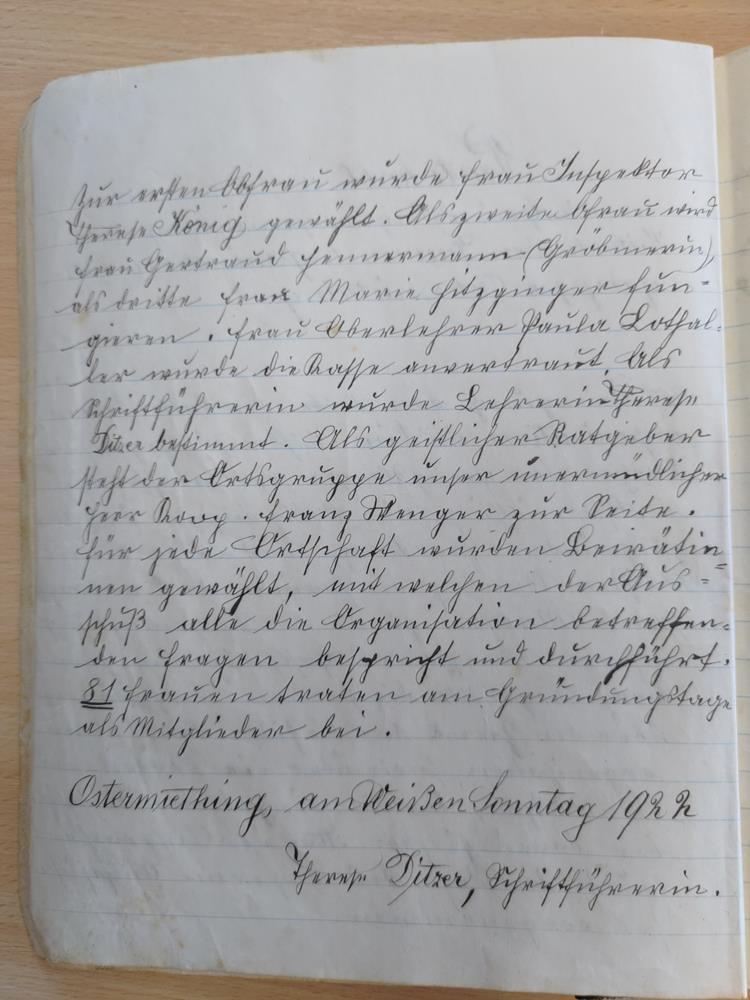 Zur ersten Obfrau wurde Frau Inspektor
Therese König gewählt. Als zweite Obfrau wird
Frau Gertraud Hennermann (Gröbmerin),
als dritte Frau Marie Hitzginger fun-
gieren. Frau Oberlehrer Paula Lothal-
ler wurde die Kasse anvertraut. Als
Schriftführerin wurde Lehrerin Therese
Ditzer bestimmt. Als geistlicher Ratgeber
steht der Ortsgruppe unser unermüdlicher
Herr Koop. Franz Wenger zur Seite.
Für jede Ortschaft wurden Beirätin-
nen gewählt, mit welchen der Aus-
schuß alle die Organisation betreffen-
den Fragen bespricht und durchführt.
81 Frauen traten am Gründungstage
als Mitglieder bei.
Ostermiething, am Weißen Sonntag 1922
Therese Ditzer, Schriftführerin.